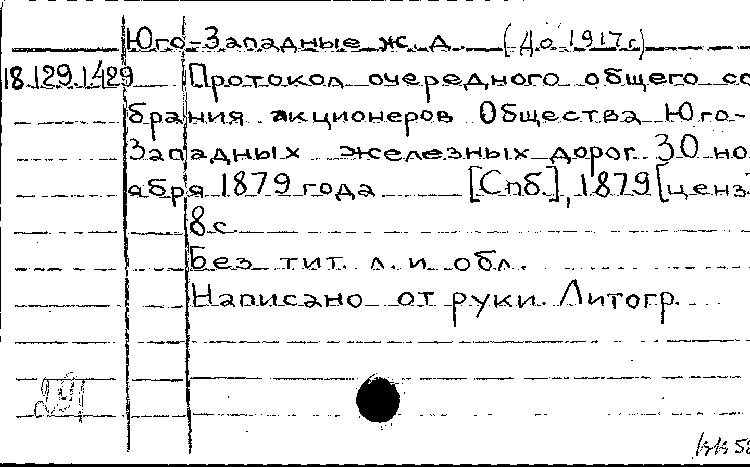 Юго-Западные ж. д. (до 1917 г.)
18.129.1.429 Протокол очередного общего со
брания акционеров Общества Юго-
Западных железных дорог 30 но
абря 1879 года [Спб.], 1879 [ценз
8 с.
Без тит. л. и обл.
Написано от руки. Литогр.
291